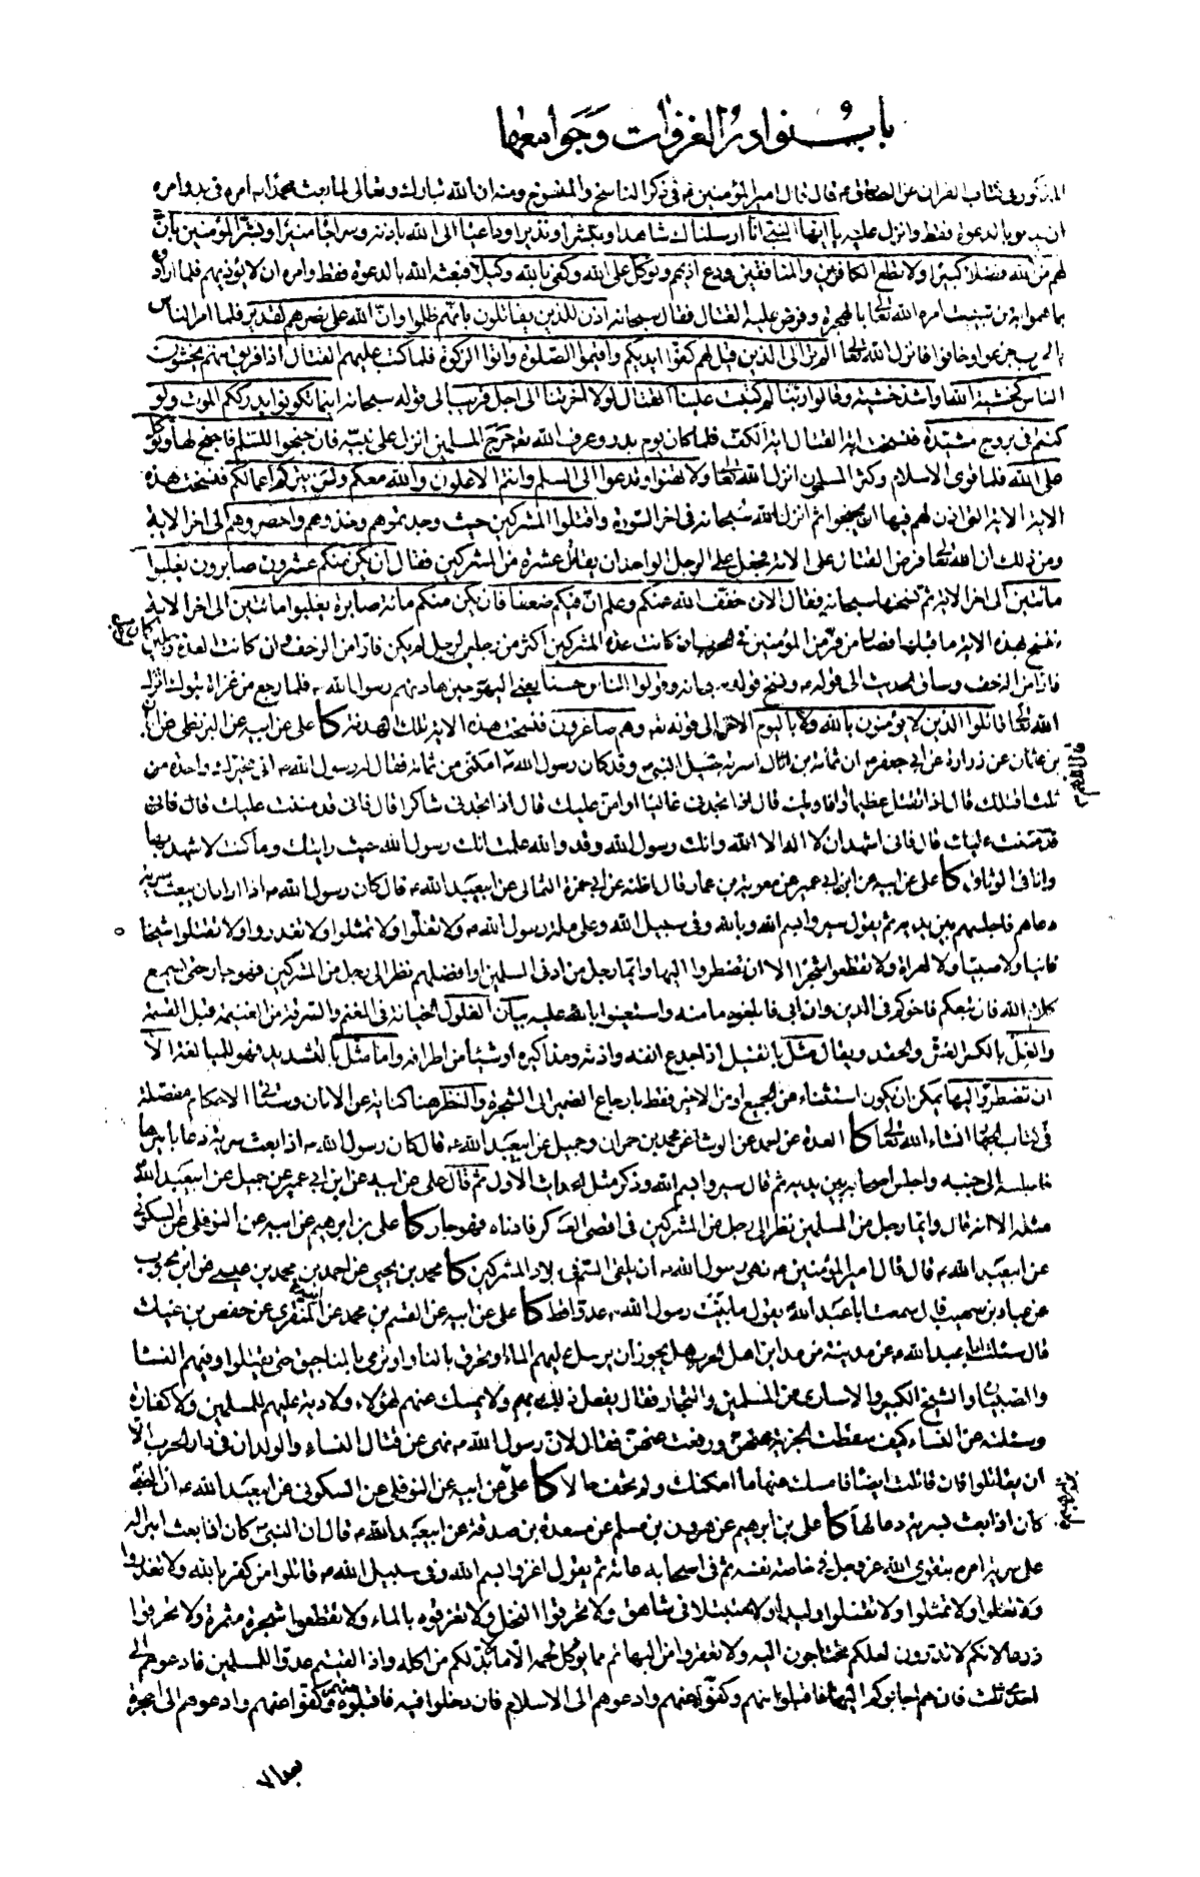 باب نوادر الغزوات وجوامعها
المذكور في كتاب القران عن الصادق ع قال قال امير المؤمنين ع في ذكر الناسخ والمنسوخ ومنه ان الله تبارك وتعالى لما بعث محمدا ص امره في بدو امره
ان يدعو بالدعوة فقط وانزل عليه يا ايها النبي انا ارسلناك شاهدا ومبشرا ونذيرا وداعيا الى الله باذنه وسراجا منيرا وبشر المؤمنين بان
لهم من الله فضلا كبيرا ولا تطع الكافرين والمنافقين ودع اذيهم وتوكل على الله وكفى بالله وكيلا فبعثه الله بالدعوة فقط وامره ان لا يؤذيهم فلما ارادوه
بما هموا به من تبييت امره الله تعالى بالهجرة وفرض عليه القتال فقال سبحانه اذن للذين يقاتلون بانهم ظلموا وان الله على نصرهم لقدير فلما امر الناس
بالحرب جزعوا وخافوا فانزل الله تعالى الم تر الى الذين قيل لهم كفوا ايديكم واقيموا الصلوة واتوا الزكوة فلما كتب عليهم القتال اذا فريق منهم يخشون
الناس كخشية الله او اشد خشية وقالوا ربنا لم كتبت علينا القتال لولا اخرتنا الى اجل قريب الى قوله سبحانه اينما تكونوا يدرككم الموت ولو
كنتم في بروج مشيدة فنسخت اية القتال اية الكف فلما كان يوم بدر وعرف الله تعالى حرج المسلمين انزل على نبيه فان جنحوا للسلم فاجنح لها وتوكل
على الله فلما قوى الاسلام وكثر المسلمون انزل الله تعالى ولا تهنوا وتدعوا الى السلم وانتم الاعلون والله معكم ولن يتركم اعمالكم فنسخت هذه
الاية الاية التي اذن لهم فيها ان يجنحوا ثم انزل الله سبحانه في اخر السورة واقتلوا المشركين حيث وجدتموهم وخذوهم واحصروهم الى اخر الاية
ومن ذلك ان الله تعالى فرض القتال على الامة فجعل على الرجل الواحد ان يقاتل عشرة من المشركين فقال ان يكن منكم عشرون صابرون يغلبوا
مائتين الى اخر الاية ثم نسخها سبحانه فقال الان خفف الله عنكم وعلم ان فيكم ضعفا فان يكن منكم مائة صابرة يغلبوا مائتين الى اخر الاية
فنسخ بهذه الاية ما قبلها فصار من فر من المؤمنين في الحرب ان كانت عدة المشركين اكثر من رجلين لرجل لم يكن فارا من الزحف وان كانت العدة رجلين كان
فارا من الزحف وساق الحديث الى قوله ع ونسخ قوله سبحانه وقولوا للناس حسنا يعني اليهود حين هادنهم رسول الله ص فلما رجع من غزاة تبوك انزل
الله تعالى قاتلوا الذين لا يؤمنون بالله ولا باليوم الاخر الى قوله تعالى وهم صاغرون فنسخت هذه الاية تلك الهدنة كا علي عن ابيه عن البزنطي عن ابان
بن عثمان عن زرارة عن ابي جعفر ع ان ثمامة بن اثال اسرته خيل النبي ص وقد كان رسول الله ص قال اللهم امكني من ثمامة فقال له رسول الله ص اني مخيرك واحدة من
ثلث اقتلك قال اذا تقتل عظيما او افاديك قال اذا تجدني غاليا او امن عليك قال اذا تجدني شاكرا قال فاني قد مننت عليك قال فاني
قد مننت عليك قال فاني اشهد ان لا اله الا الله وانك رسول الله وقد والله علمت انك رسول الله حيث رايتك وما كنت لاشهد بها
وانا في الوثاق كا علي عن ابيه عن ابن ابي عمير عن معوية بن عمار قال اظنه عن ابي حمزة الثمالي عن ابي عبد الله ع قال كان رسول الله ص اذا اراد ان يبعث سرية
دعاهم فاجلسهم بين يديه ثم يقول سيروا بسم الله وبالله وفي سبيل الله وعلى ملة رسول الله ص ولا تغلوا ولا تمثلوا ولا تغدروا ولا تقتلوا شيخا
فانيا ولا صبيا ولا امراة ولا تقطعوا شجرا الا ان تضطروا اليها وايما رجل من ادنى المسلمين او افضلهم نظر الى رجل من المشركين فهو جار حتى يسمع
كلام الله فان تبعكم فاخوكم في الدين وان ابى فابلغوه مامنه واستعينوا بالله عليه بيان الغلول الخيانة في المغنم والسرقة من الغنيمة قبل القسمة
والغل بالكسر الغش والحقد ويقال مثل بالقتيل اذا جدع انفه واذنه ومذاكيره او شيئا من اطرافه واما مثل بالتشديد فهو للمبالغة الا
ان تضطروا اليها يمكن ان يكون استثناء من الجميع او من الاخير فقط بارجاع الضمير الى الشجرة والنظر هنا كناية عن الامان وستاتي الاحكام مفصلة
في كتاب الجهاد انشاء الله تعالى كا العدة عن احمد عن الوشاء عن محمد بن حمران وجميل عن ابي عبد الله ع قال كان رسول الله ص اذا بعث سرية دعا باميرها
فاجلسه الى جنبه واجلس اصحابه بين يديه ثم قال سيروا بسم الله وذكر مثل الحديث الاول ثم قال علي عن ابيه عن ابن ابي عمير عن جميل عن ابي عبد الله ع
مثله الا انه قال وايما رجل من المسلمين نظر الى رجل من المشركين في اقصى العسكر فادناه فهو جار كا علي بن ابرهيم عن ابيه عن النوفلي عن السكوني
عن ابي عبد الله ع قال قال امير المؤمنين ع نهى رسول الله ص ان يلقى السم في بلاد المشركين كا محمد بن يحيى عن احمد بن محمد بن عيسى عن ابن محبوب
عن عباد بن صهيب قال سمعت ابا عبد الله ع يقول ما بيت رسول الله ص عدوا قط كا علي عن ابيه عن القسم بن محمد عن المنقري عن حفص بن غياث
قال سئلت ابا عبد الله ع عن مدينة من مداين اهل الحرب هل يجوز ان يرسل عليهم الماء او تحرق بالنار او ترمى بالمناجيق حتى يقتلوا وفيهم النساء
والصبيان والشيخ الكبير والاسارى من المسلمين والتجار فقال يفعل ذلك بهم ولا يمسك عنهم لهؤلاء ولا دية عليهم للمسلمين ولا كفارة
وسئلته عن النساء كيف سقطت الجزية عنهن ورفعت عنهن فقال لان رسول الله ص نهى عن قتال النساء والولدان في دار الحرب الا
ان يقاتلوا فان قاتلت ايضا فامسك عنها ما امكنك ولم تخف حالا كا علي عن ابيه عن النوفلي عن السكوني عن ابي عبد الله ع ان النبي ص
كان اذا بعث بسرية دعا لها كا علي بن ابرهيم عن هرون بن مسلم عن مسعدة بن صدقة عن ابي عبد الله ع قال ان النبي ص كان اذا بعث اميرا له
على سرية امره بتقوى الله عز وجل في خاصة نفسه ثم في اصحابه عامة ثم يقول اغزوا بسم الله وفي سبيل الله ص قاتلوا من كفر بالله ولا تغدروا
ولا تغلوا ولا تمثلوا ولا تقتلوا وليدا ولا متبتلا في شاهق ولا تحرقوا النخل ولا تغرقوه بالماء ولا تقطعوا شجرة مثمرة ولا تحرقوا
زرعا لانكم لا تدرون لعلكم تحتاجون اليه ولا تعقروا من البهائم مما يؤكل لحمه الا ما لابد لكم من اكله واذا لقيتم عدوا للمسلمين فادعوهم الى
احدى ثلث فان هم اجابوكم اليها فاقبلوا منهم وكفوا عنهم وادعوهم الى الاسلام فان دخلوا فيه فاقبلوه منهم وكفوا عنهم وادعوهم الى الهجرة